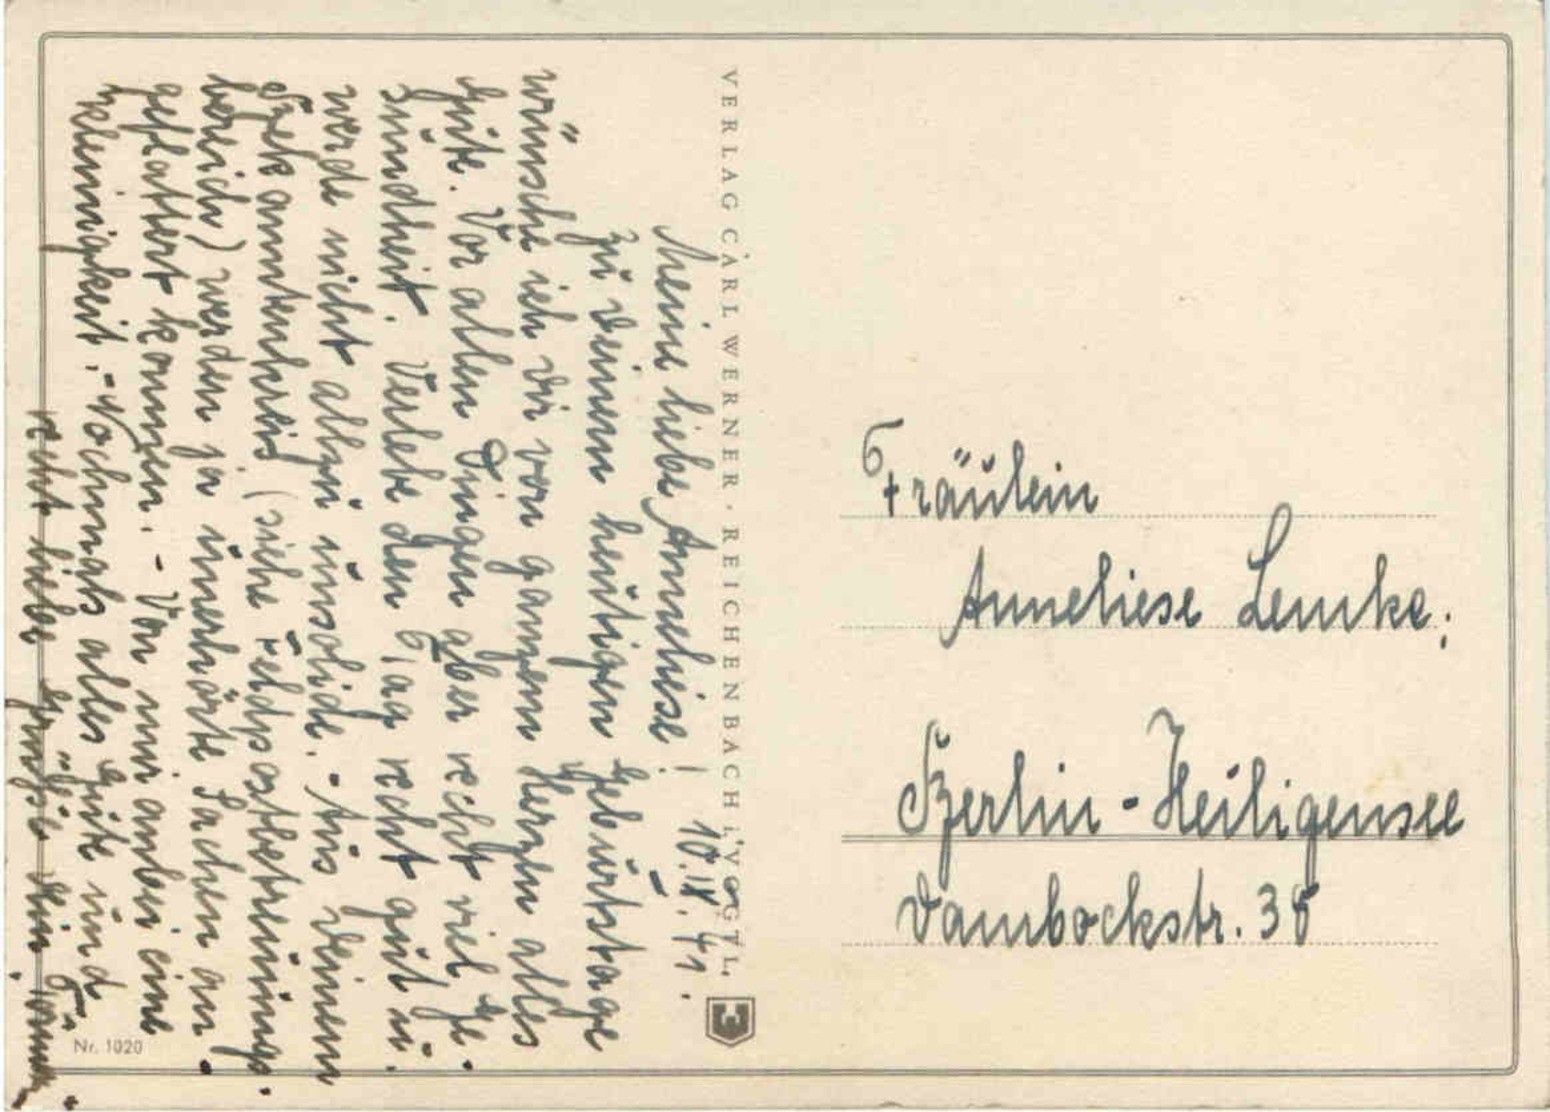 Meine liebe Anneliese! 10.IX.41.
Zu Deinem heutigen Geburtstage
wünsche ich Dir von ganzem Herzen alles
Gute. Vor allen Dingen aber recht viel Ge-
sundheit. Verlebe den Tag recht gut u.
werde nicht allzu unsolide. - Aus Deinem
Bekanntenkreis (siehe Feldpostbetreuungs-
bereich) werden ja unerhörte Sachen an-
geflattert kommen. - Von mir anbei eine
Kleinigkeit. - Nochmals alles Gute und
recht liebe Grüße Dein
VERLAG CARL WERNER · REICHENBACH i. VOGTL.
Nr. 1020
Fräulein
Anneliese Lemke.
Berlin-Heiligensee
Dambockstr. 38